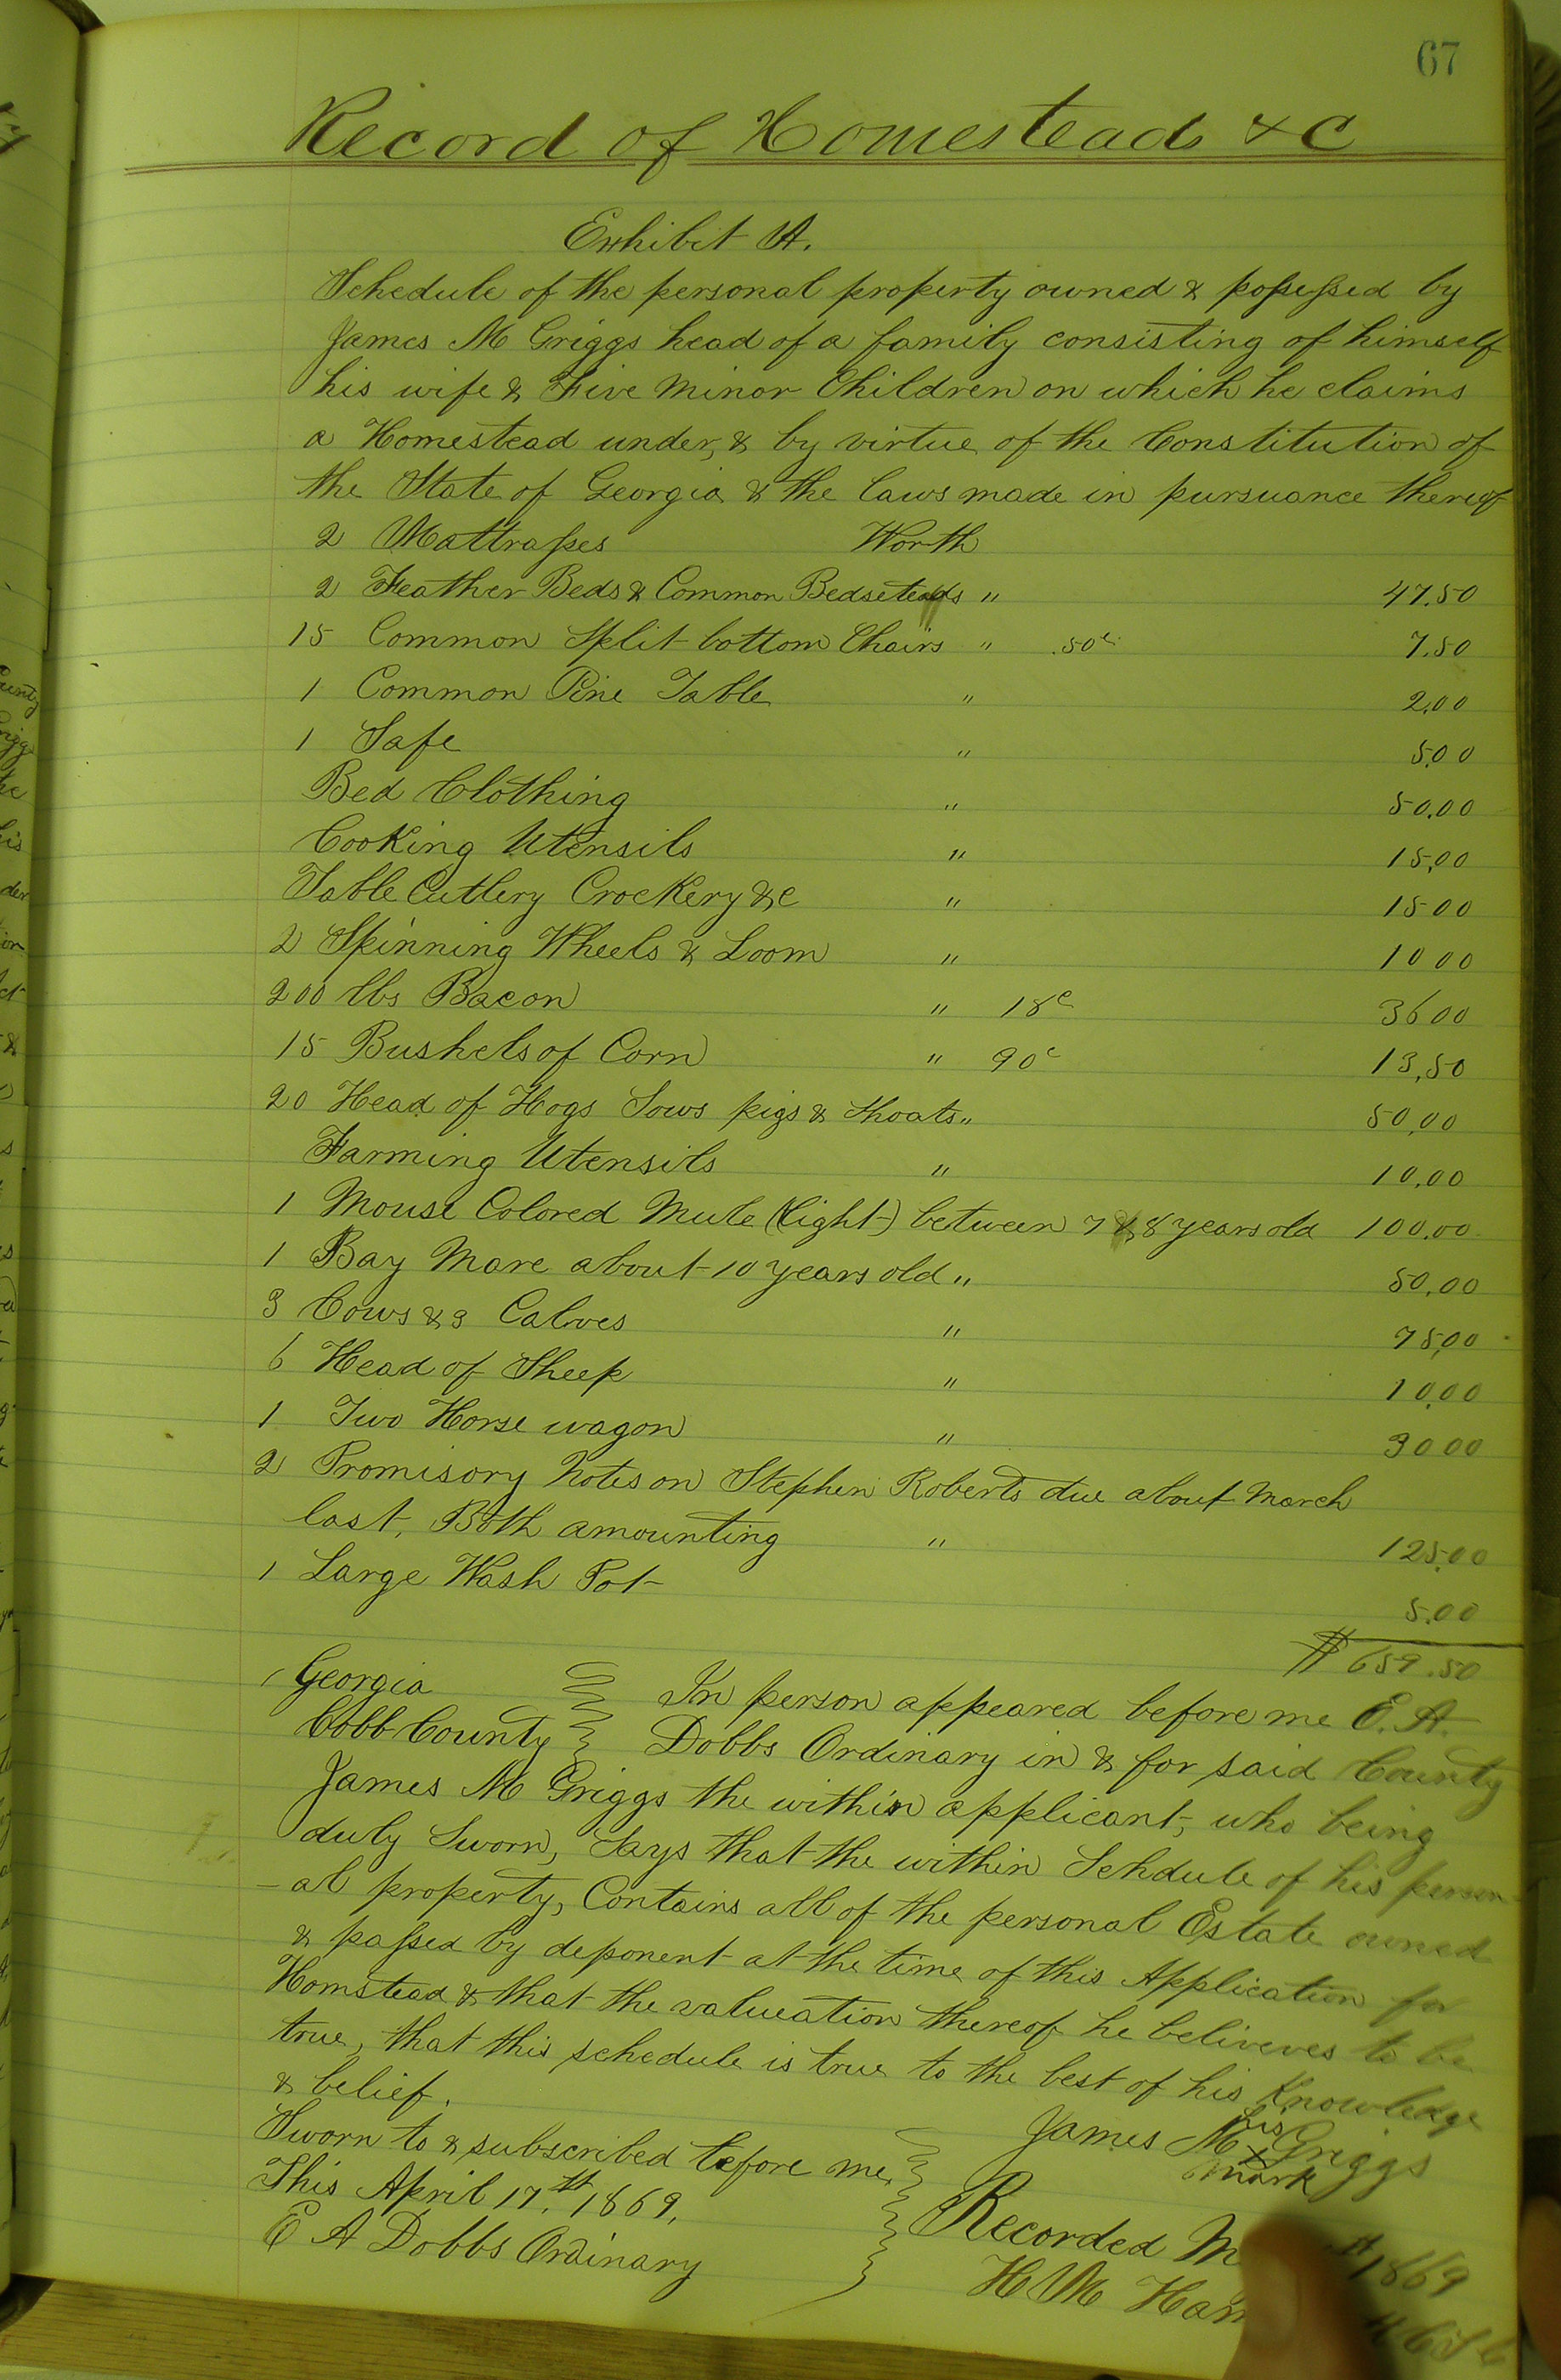 67
Record of Homestead &C
Exhibit A.
Schedule of the personal property owned & possessed by
James M Griggs head of a family consisting of himself
his wife & Five minor Children on which he claims
a Homestead under, & by virtue of the Constitution of
the State of Georgia & the laws made in pursuance thereof
2 Mattrasses Worth
2 Feather Beds & Common Bedsteads " 47.50
15 Common Split bottom Chairs " .50c 7.50
1 Common Pine Table " 2.00
1 Safe " 5.00
Bed Clothing " 50.00
Cooking Utensils " 15.00
Table Cutlery Crockery &c " 1500
2 Spinning Wheels & Loom " 1000
200 lbs Bacon " 18c 3600
15 Bushels of Corn " 90c 13,50
20 Head of Hogs Sows pigs & Shoats " 50,00
Farming Utensils " 10.00
1 Mouse Colored Mule (light) between 7 & 8 years old 100.00
1 Bay Mare about 10 years old " 50.00
3 Cows & 3 Calves " 75,00
6 Head of Sheep " 10.00
1 Two Horse wagon " 3000
2 Promisory Notes on Stephen Roberts due about March
last, Both amounting " 125.00
1 Large Wash Pot 5.00
$659.50
Georgia In person appeared before me E. A.
Cobb County Dobbs Ordinary in & for said County
James M Griggs the within applicant, who being
duly Sworn, Says that the within Schdule of his person
-al property, Contains all of the personal Estate owned
& passed by deponent at the time of this Application for
Homstead & that the valueation thereof he beliveves to be
true, that this schedule is true to the best of his Knowledge
& belief.
Sworn to & subscribed before me
This April 17th, 1869,
E A Dobbs Ordinary
his
James M x Griggs
mark
Recorded 1869
H M